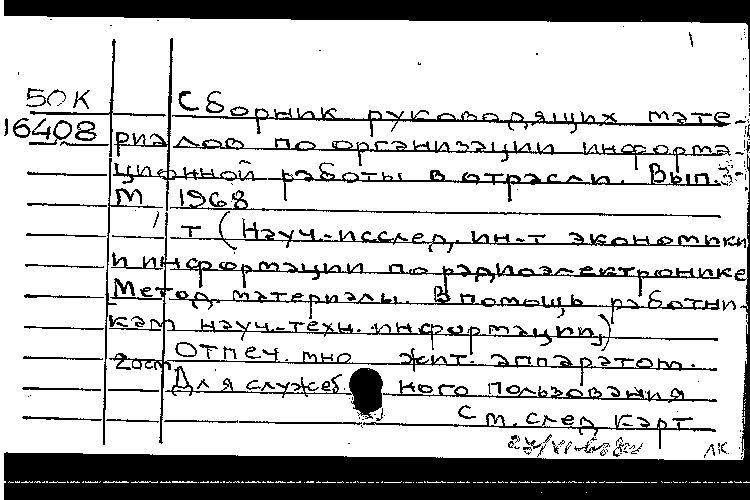 50К
16408
Сборник руководящих мате-
риалов по организации информа-
ционной работы в отрасли. Вып. 3.
М 1968
т (Науч.-исслед. ин-т экономики
и информации по радиоэлектронике
Метод. материалы. В помощь работни-
кам науч.-техн. информации)
Отпеч. мно жит. аппаратом.
Для служеб ного пользования
См. след карт
ЛК